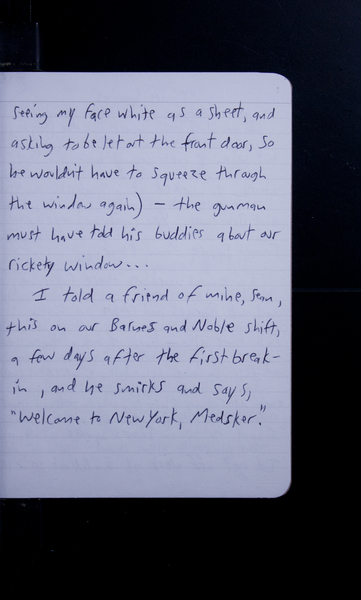 seeing my face white as a sheet, and
asking to be let out the front door, so
he wouldn't have to squeeze through
the window again) — the gunman
must have told his buddies about our
rickety window...
I told a friend of mine, Sean,
this on our Barnes and Noble shift,
a few days after the first break-
in, and he smirks and says,
"Welcome to New York, Medsker."